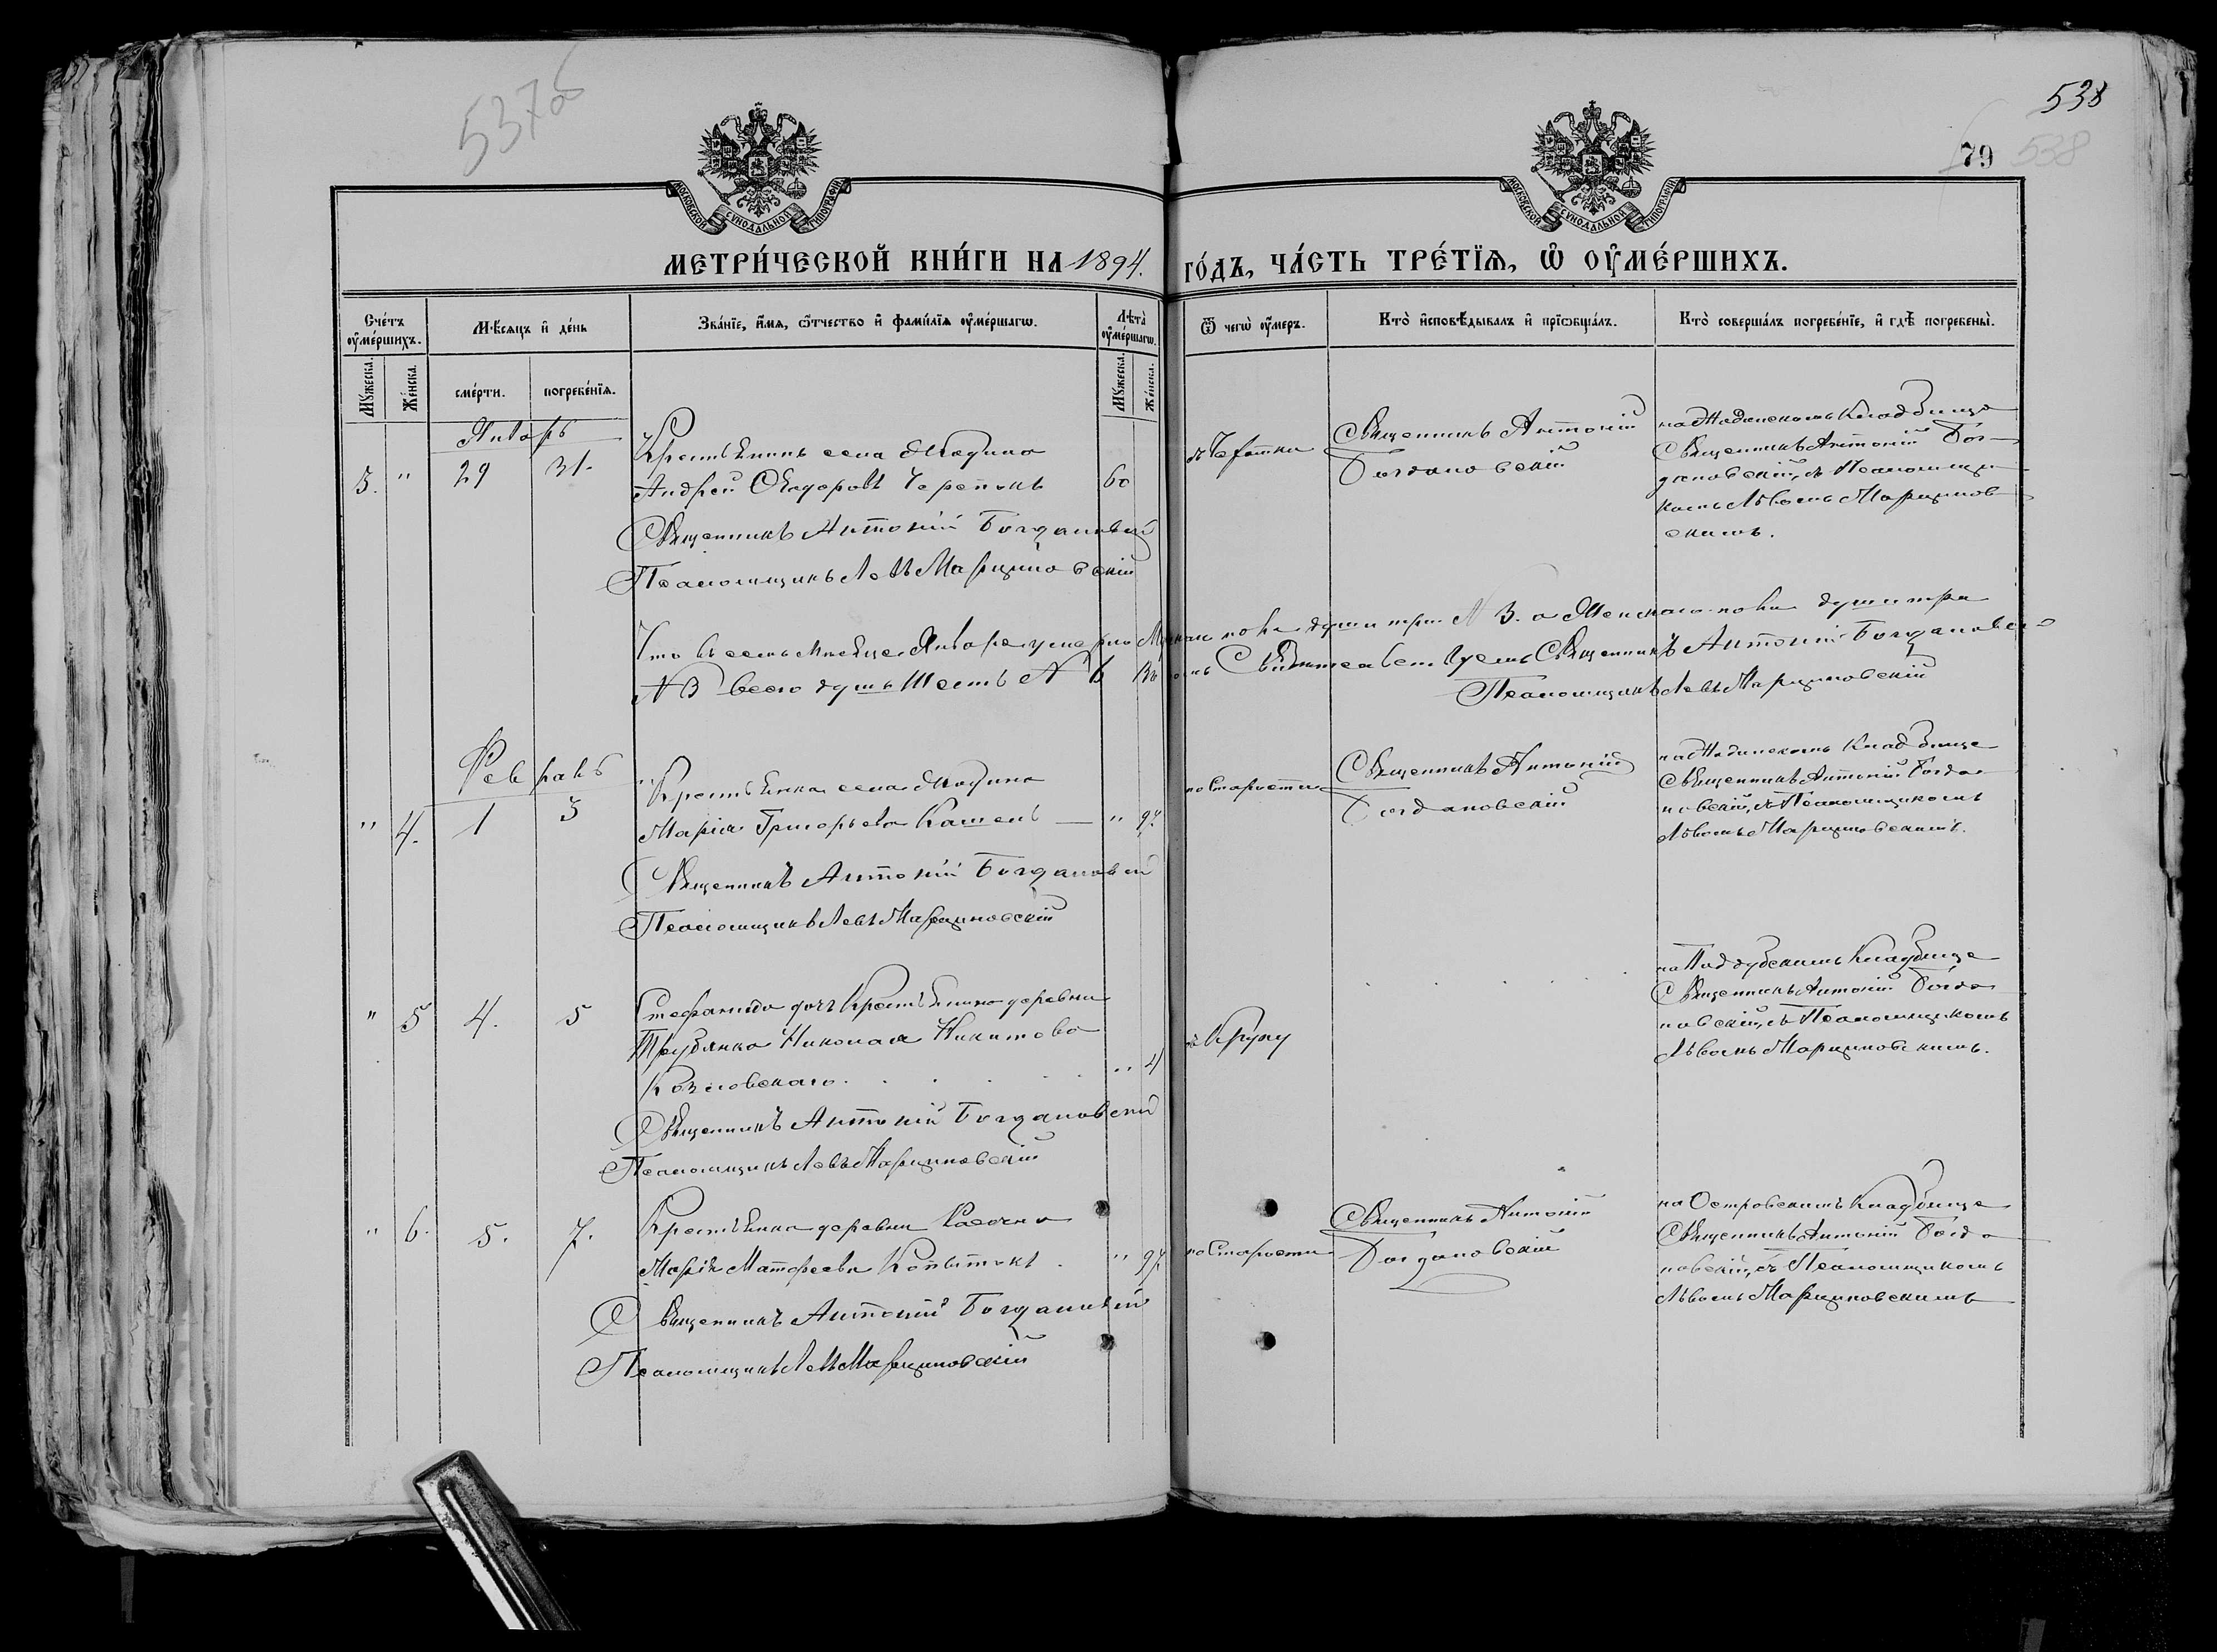 537об
538
79 538
МОСКОВСКОЙ СУНОДАЛЬНОЙ ТИПОГРАФІИ
МОСКОВСКОЙ СУНОДАЛЬНОЙ ТИПОГРАФІИ
МЕТРИ́ЧЕСКОЙ КНИ́ГИ НА 1894. ГО́ДЪ, ЧА́СТЬ ТРЕ́ТЇѦ, Ѡ҆ ОУ҆МЕ́РШИХЪ.
Сче́тъ оу҆ме́ршихъ.
Мꙋжеска.
Же́нска.
Мѣ́сѧцъ и҆ де́нь
сме́рти.
погребе́нїѧ.
Зва́нїе, и҆́мѧ, ѻ҆́тчество и҆ фами́лїѧ оу҆ме́ршагѡ.
Лѣта̀ оу҆ме́ршагѡ.
Мꙋжеска.
Же́нска.
Ѿ чегѡ̀ оу҆́меръ.
Кто̀ и҆сповѣ́дывалъ и҆ прїѡбща́лъ.
Кто̀ соверша́лъ погребе́нїе, и҆ гдѣ̀ погребены̀.
Январь
3. " 29 31.
Крестьянинъ села
Андрей Ѳедоровъ 60
Священникъ Антоній Богдановскій
Псаломщикъ Левъ Марциновскій
Священникъ Антоній
Богдановскій
кладбище
Священникъ Антоній Бог-
дановскій, съ Псаломщи-
комъ Львомъ Марцинов-
скимъ.
Что въ семъ мѣсяце Январе умерло пола души три N 3. а Женскаго пола души три
N 3 всего душъ шесть N 6 Свидѣтельствуемъ Священникъ Антоній Богдановскій
Псаломщикъ Левъ Марциновскій
Февраль
" 4. 1 3
Крестьянка села
Марія Григорьева Кашель — " 97
Священникъ Антоній Богдановскій
Псаломщикъ Левъ Марциновскій
по Старости
Священникъ Антоній
Богдановскій
Кладбище
Священникъ Антоній Богда-
новскій, съ Псаломщикомъ
Львомъ Марциновскимъ.
" 5 4. 5
Стефанида дочь Крестьянина деревни
Николая Никитова
Козловскаго. " 4
Священникъ Антоній Богдановскій
Псаломщикъ Левъ Марциновскій
съ Крупу
на Поддубскимъ Кладбище
Священникъ Антоній Богда-
новскій, съ Псаломщикомъ
Львомъ Марциновскимъ.
" 6. 5. 7.
Крестьянка деревни
Марія Матфеева Копытокъ " 97
Священникъ Антоній Богдановскій
Псаломщикъ Левъ Марциновскій
по Старости
Священникъ Антоній
Богдановскій
на Островскимъ Кладбище
Священникъ Антоній Богда-
новскій, съ Псаломщикомъ
Львомъ Марциновскимъ